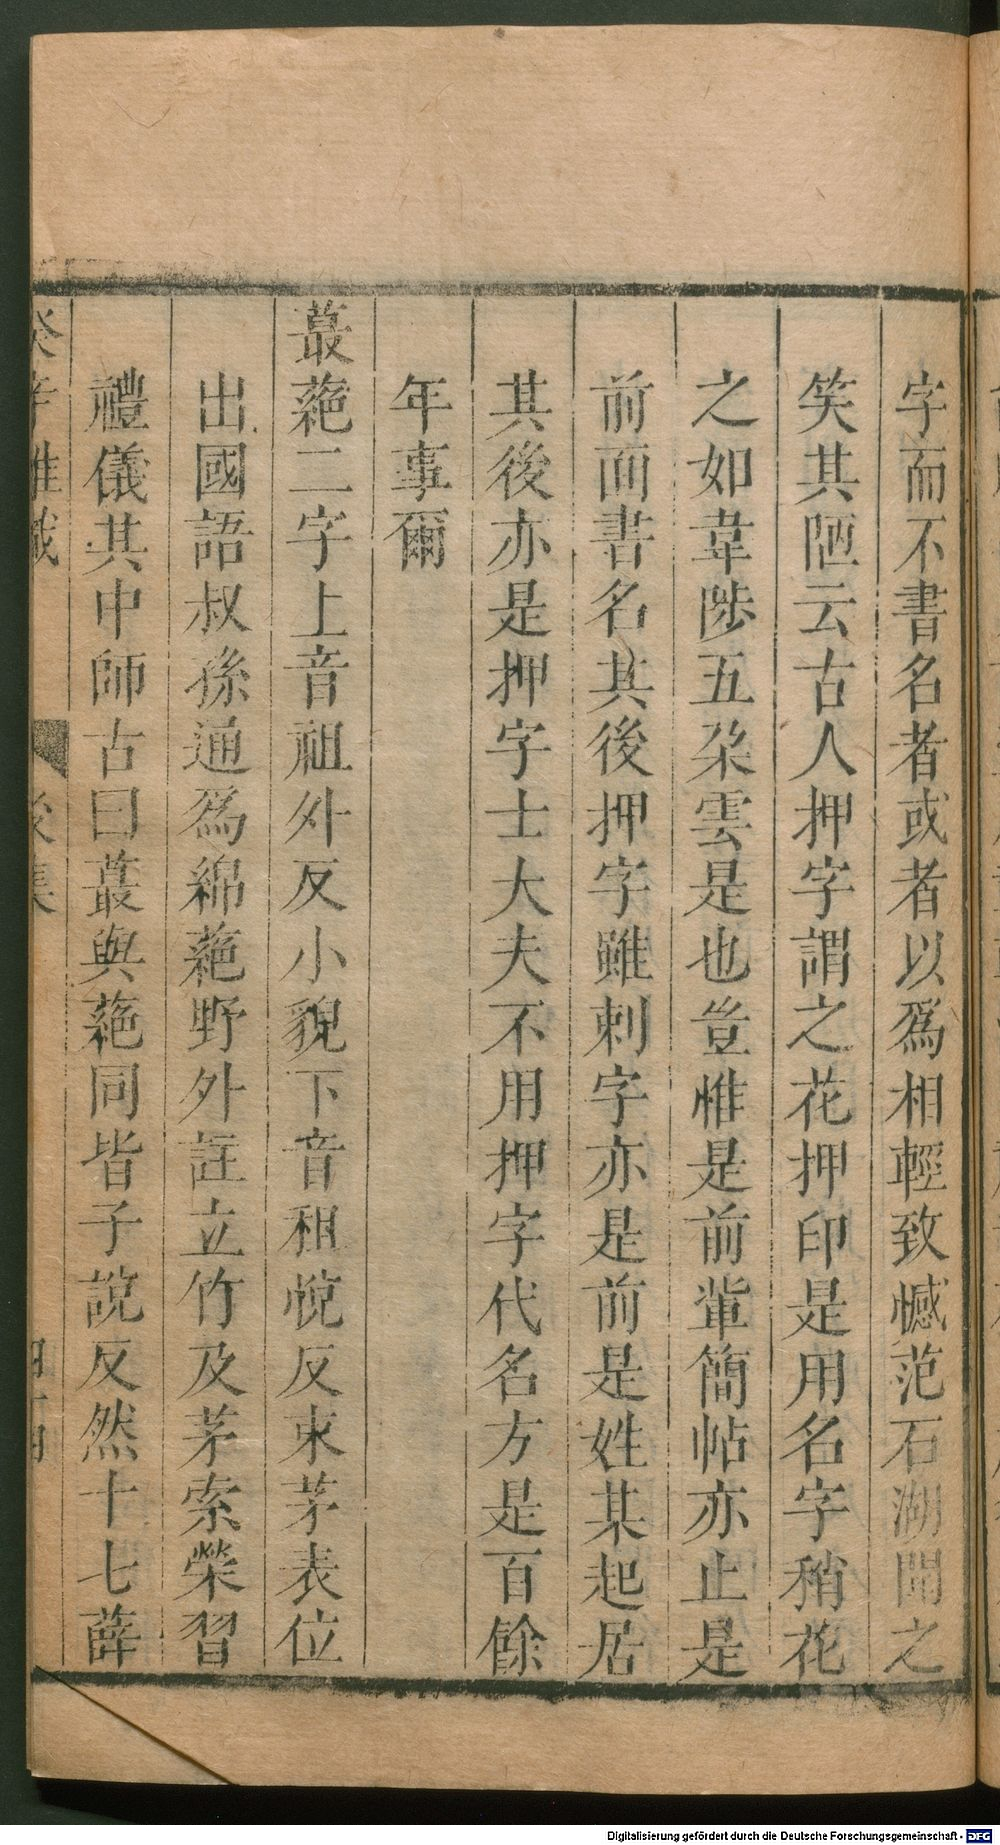 字而不書名者或者以爲相輕致憾范石湖聞之
笑其陋云古人押字謂之花押印是用名字稍花
之如韋陟五朶雲是也豈惟是前輩簡帖亦止是
前面書名其後押字雖刺字亦是前是姓某起居
其後亦是押字士大夫不用押字代名方是百餘
年事爾
蕞蕝二字上音祖外反小貌下音租悅反束茅表位
出國語叔孫通爲綿蕝野外註立竹及茅索縈習
禮儀其中師古曰蕞與蕝同皆子說反然十七薛
癸辛雜識
後集
Digitalisierung gefördert durch die Deutsche Forschungsgemeinschaft - DFG